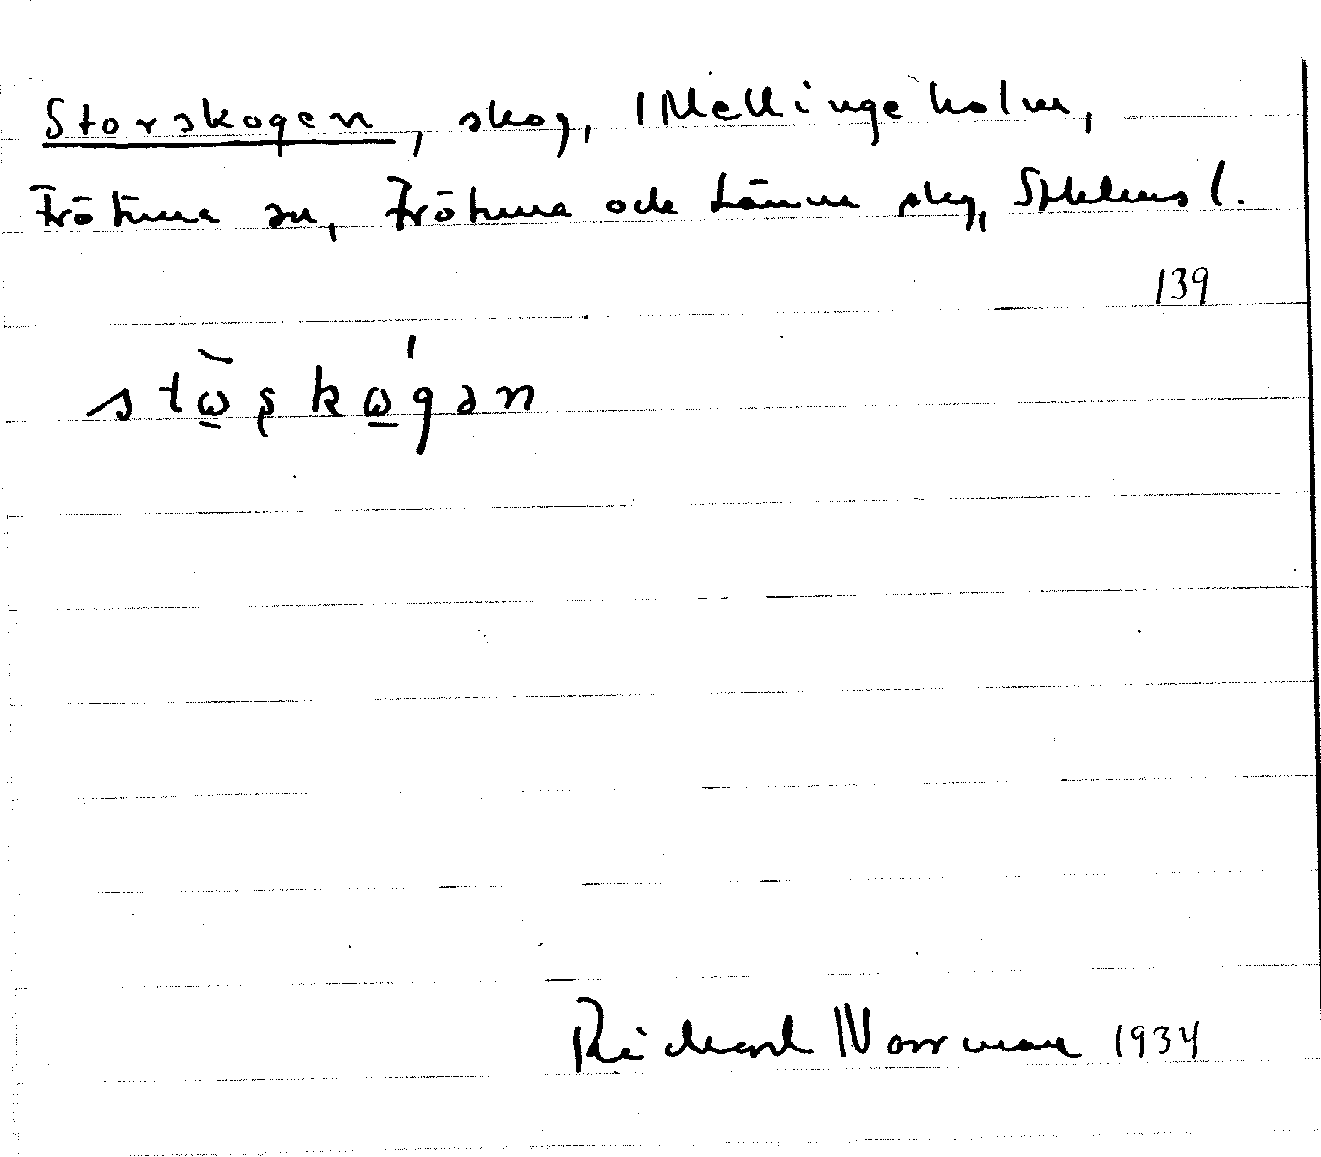 Storskogen, skog, Mellingeholm,
Frötuna sn, Frötuna och Länna skg, Sthlms l.
139
stὼ̲ʂkώ̲gən
Richard Norrman 1934